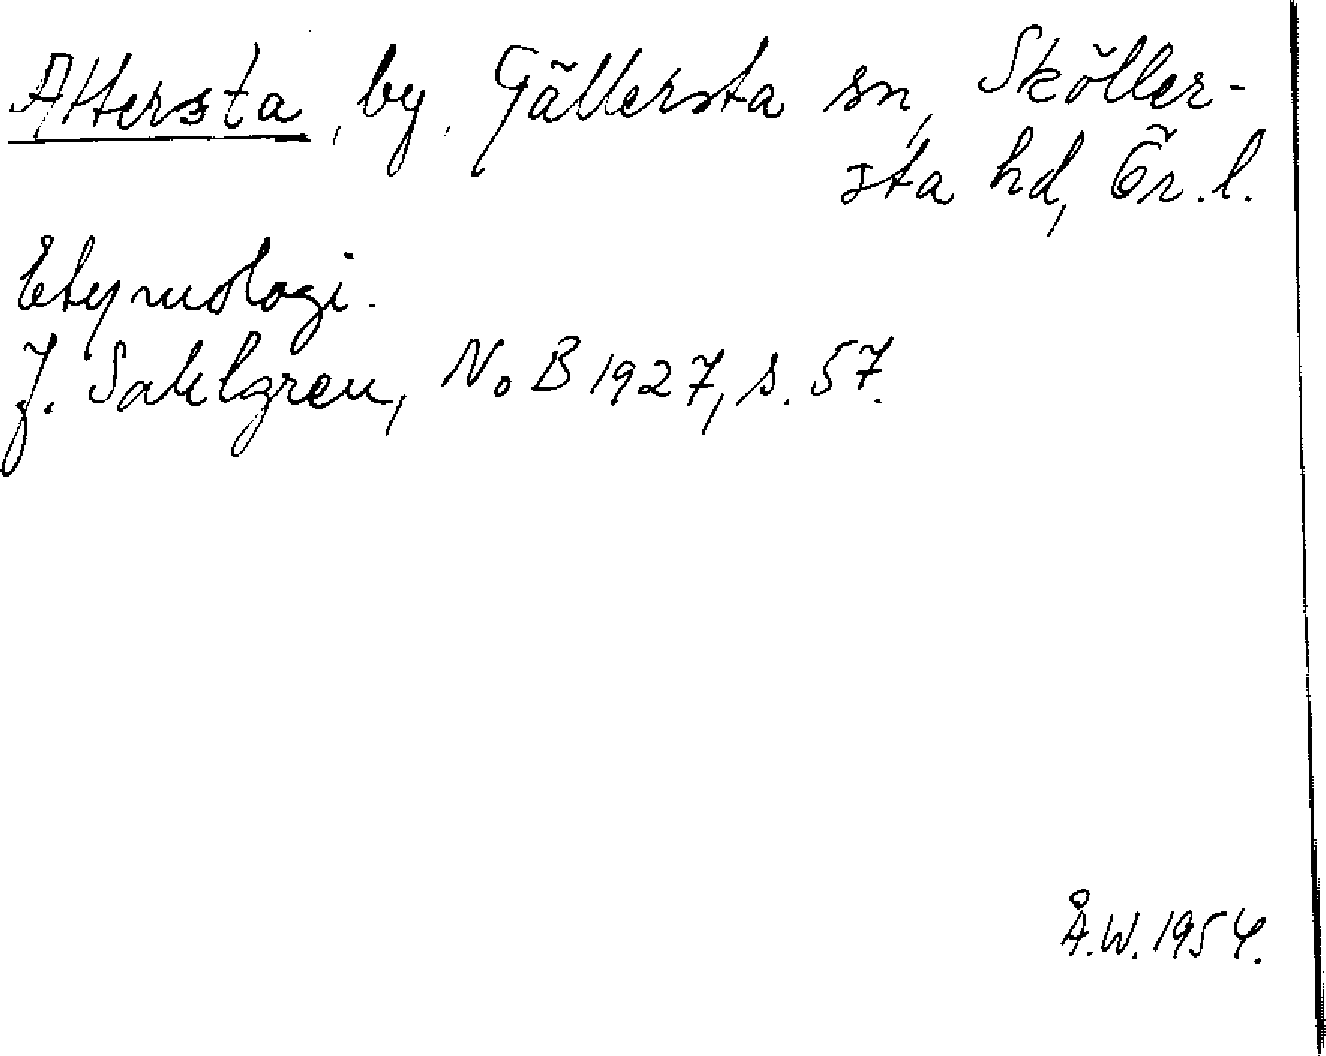 Attersta, by, Gällersta sn, Sköller-
sta hd, Ör.l.
Etymologi.
J. Sahlgren, NoB 1927, s. 57.
Å.W. 1954.